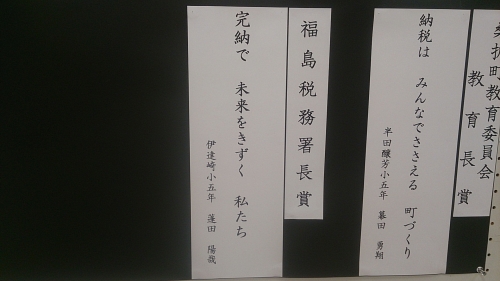 桑折町教育委員会
教育長賞
納税は みんなでささえる 町づくり
半田醸芳小五年 幕田 勇翔
福島税務署長賞
完納で 未来をきずく 私たち
伊達崎小五年 蓬田 陽哉